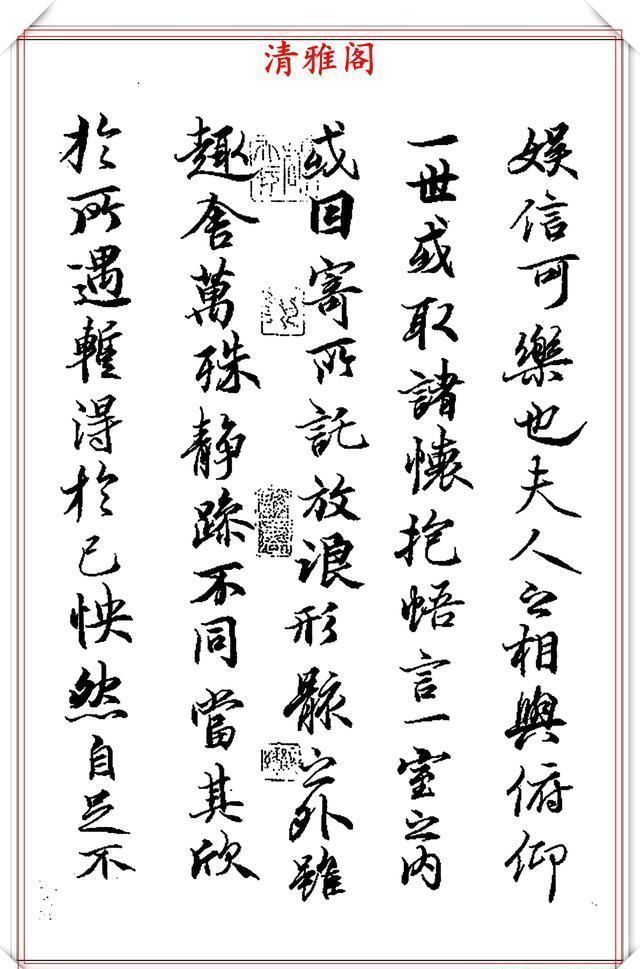 清雅阁
娱信可樂也夫人之相與俯仰
一世或取諸懐抱悟言一室之内
或因寄所託放浪形骸之外雖
趣舍萬殊静躁不同當其欣
於所遇蹔得於己怏然自足不